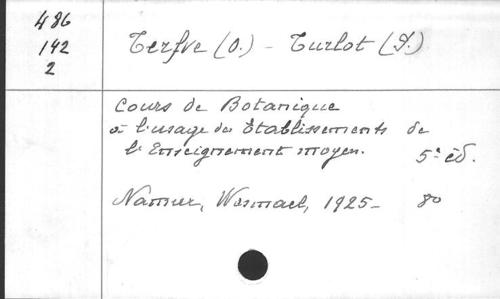 486
142
2
Terfve (O.) - Turlot (F.)
Cours de Botanique
à l'usage des Etablissements de
l'Enseignement moyen. 5e éd.
Namur, Wesmael, 1925- 8o